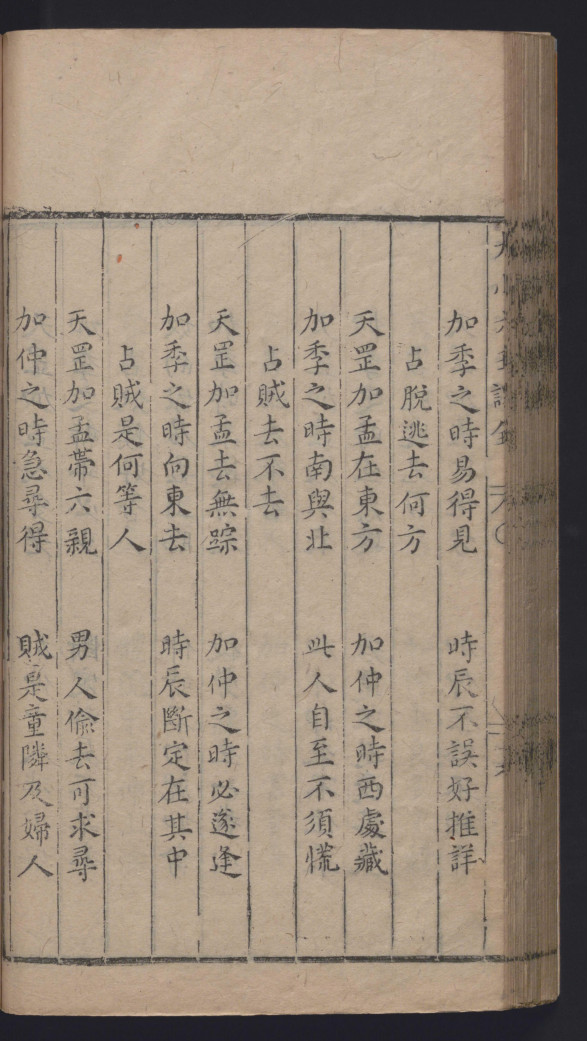 加季之時易得見　時辰不誤好推詳
占脫逃去何方
天罡加孟在東方　加仲之時西處藏
加季之時南與北　此人自至不須慌
占賊去不去
天罡加孟去無踪　加仲之時必遂逢
加季之時向東去　時辰斷定在其中
占賊是何等人
天罡加孟帶六親　男人偷去可求尋
加仲之時急尋得　賊是童隣及婦人